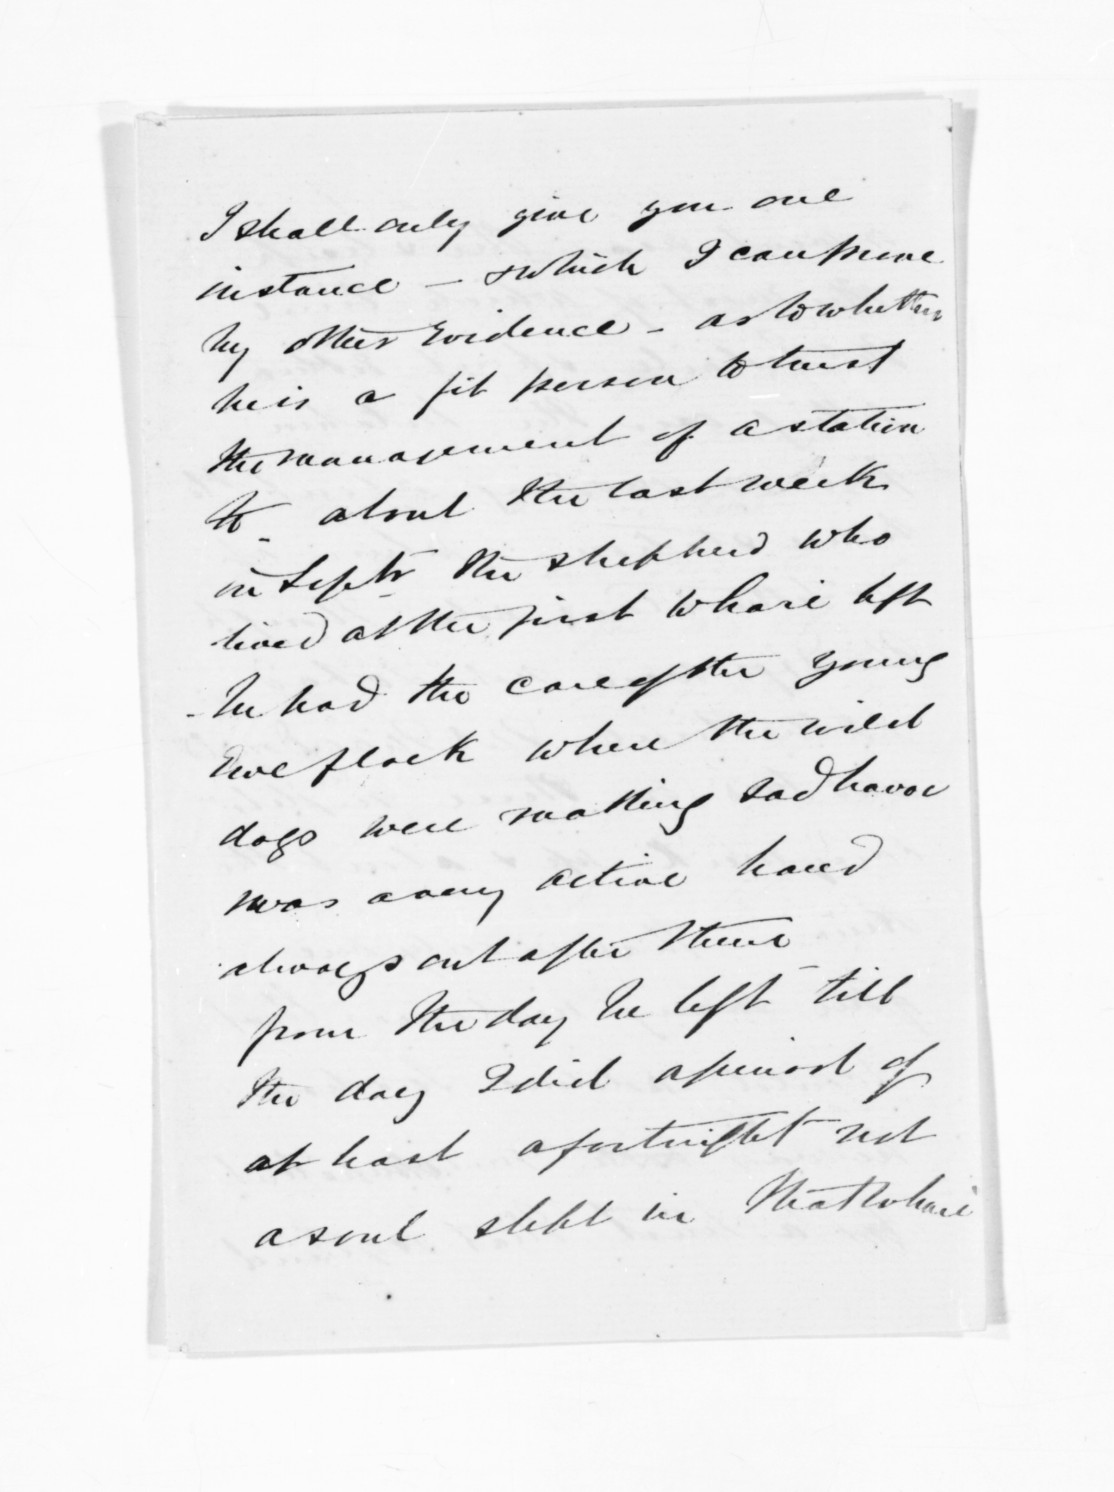 I shall only give you one
instance – which I can prove
by other Evidence – as to whether
he is a fit person to trust
the management of a station
to – about the last week
in Septr the shepherd who
lived at the first Whare left
- he had the care of the young
Ewe flock where the wild
dogs were making sad havoc
was a very active hand
always out after them –
from the day he left till
the day I did a period of
at least a fortnight not
a soul slept in that whare